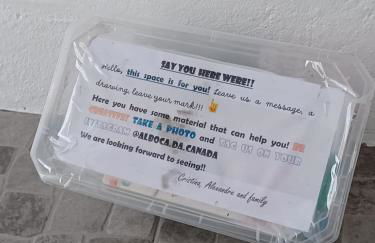 SAY YOU HERE WERE!!
Hello, this space is for you! Leave us a message, a
drawing, leave your mark!!! ✌
Here you have some material that can help you! BE
CREATIVE! TAKE A PHOTO and TAG US ON YOUR
INSTAGRAM @ALBOCA.DA.CANADA
We are looking forward to seeing!!
Cristina, Alexandre and family